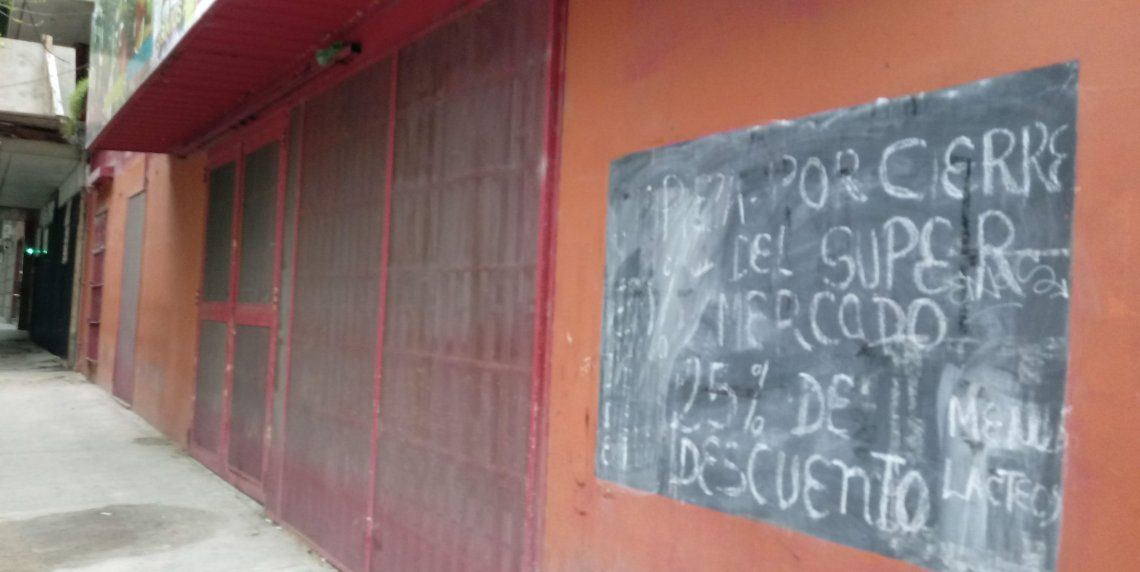 POR CIERRE
DEL SUPER
MERCADO
25% DE
DESCUENTO
MENUS
LACTEOS